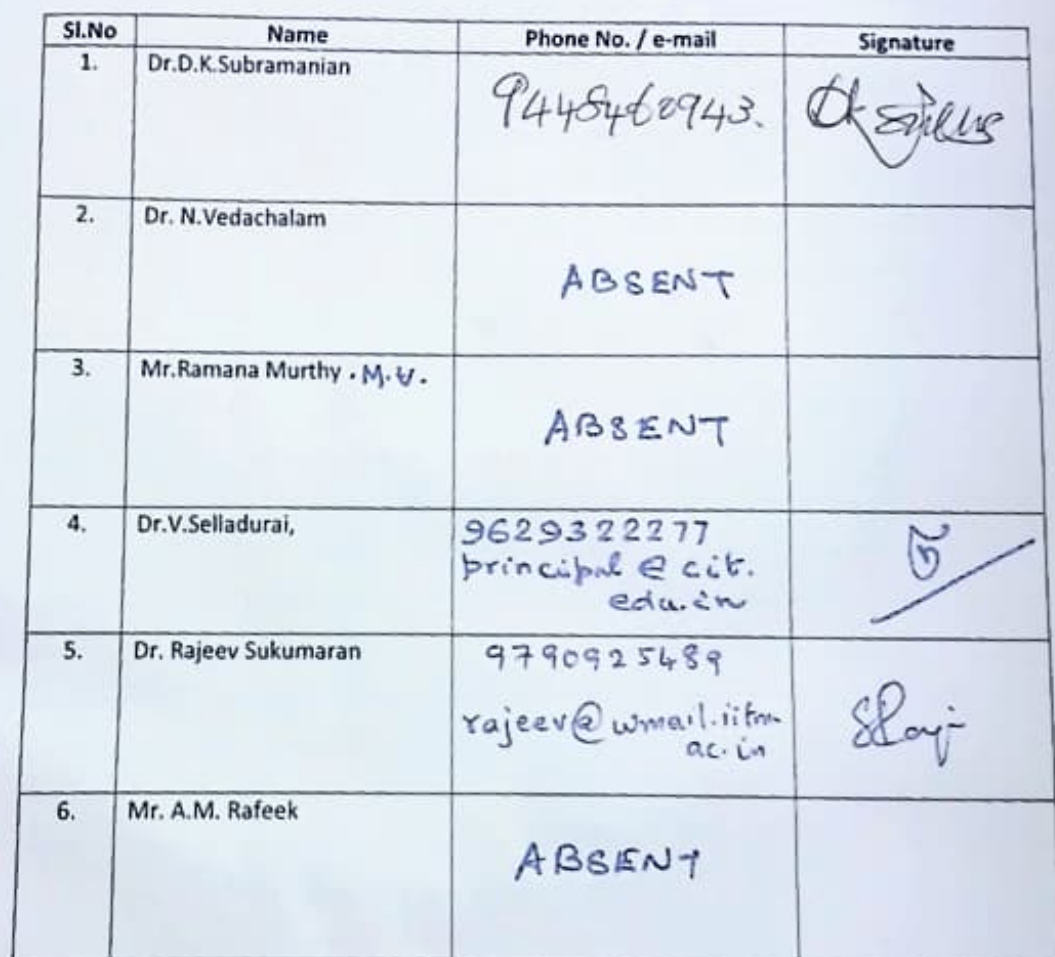 Sl.No Name Phone No. / e-mail Signature
1. Dr.D.K.Subramanian
9448460943.
2. Dr. N.Vedachalam
ABSENT
3. Mr.Ramana Murthy . M.V.
ABSENT
4. Dr.V.Selladurai, 9629322277
principal @ cit.
edu.in
5. Dr. Rajeev Sukumaran 9790925489
rajeev@wmail.iitm.
ac.in
6. Mr. A.M. Rafeek
ABSENT